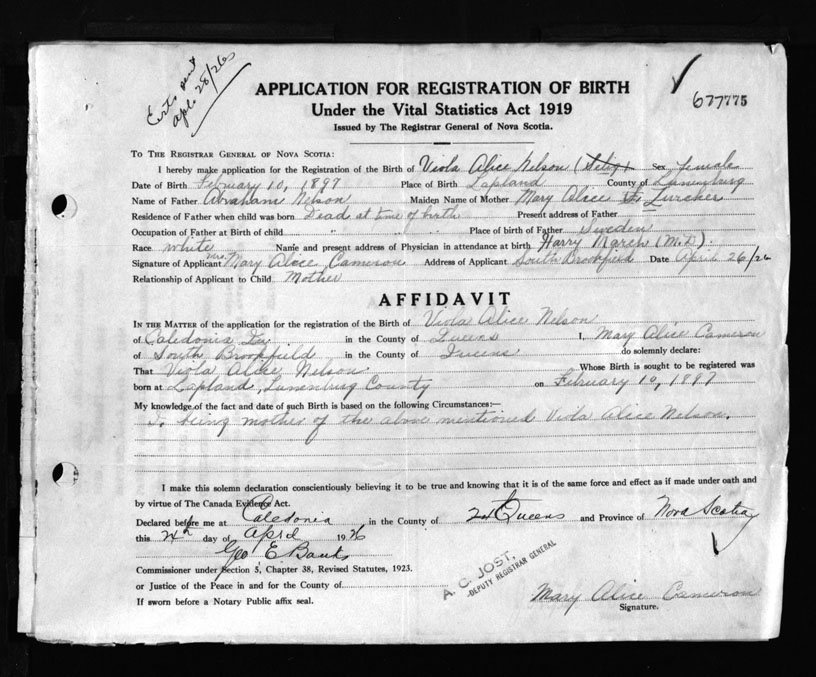 Certs sent
Apl. 28/26
APPLICATION FOR REGISTRATION OF BIRTH
677775
Under the Vital Statistics Act 1919
Issued by The Registrar General of Nova Scotia.
To The Registrar General of Nova Scotia:
I hereby make application for the Registration of the Birth of Viola Alice Nelson Sex female
Date of Birth February 10, 1897 Place of Birth Lapland County of Lunenburg
Name of Father Abraham Nelson Maiden Name of Mother Mary Alice Lurcher
Residence of Father when child was born Dead at time of birth Present address of Father
Occupation of Father at Birth of child " " " Place of birth of Father Sweden
Race white Name and present address of Physician in attendance at birth Harry March (M.D.)
Signature of Applicant Mrs Mary Alice Cameron Address of Applicant South Brookfield Date April 26/26
Relationship of Applicant to Child Mother
AFFIDAVIT
In the Matter of the application for the registration of the Birth of Viola Alice Nelson
of Caledonia in the County of Queens I, Mary Alice Cameron
of South Brookfield in the County of Queens do solemnly declare:
That Viola Alice Nelson Whose Birth is sought to be registered was
born at Lapland, Lunenburg County on February 10, 1897
My knowledge of the fact and date of such Birth is based on the following Circumstances:—
I. being mother of the above mentioned Viola Alice Nelson.
I make this solemn declaration conscientiously believing it to be true and knowing that it is of the same force and effect as if made under oath and
by virtue of The Canada Evidence Act.
Declared before me at Caledonia in the County of Queens and Province of Nova Scotia
this 24th day of April 1926
Geo E Banks
Commissioner under Section 5, Chapter 38, Revised Statutes, 1923.
or Justice of the Peace in and for the County of
A. C. JOST,
-DEPUTY REGISTRAR GENERAL
If sworn before a Notary Public affix seal.
Mary Alice Cameron
Signature.